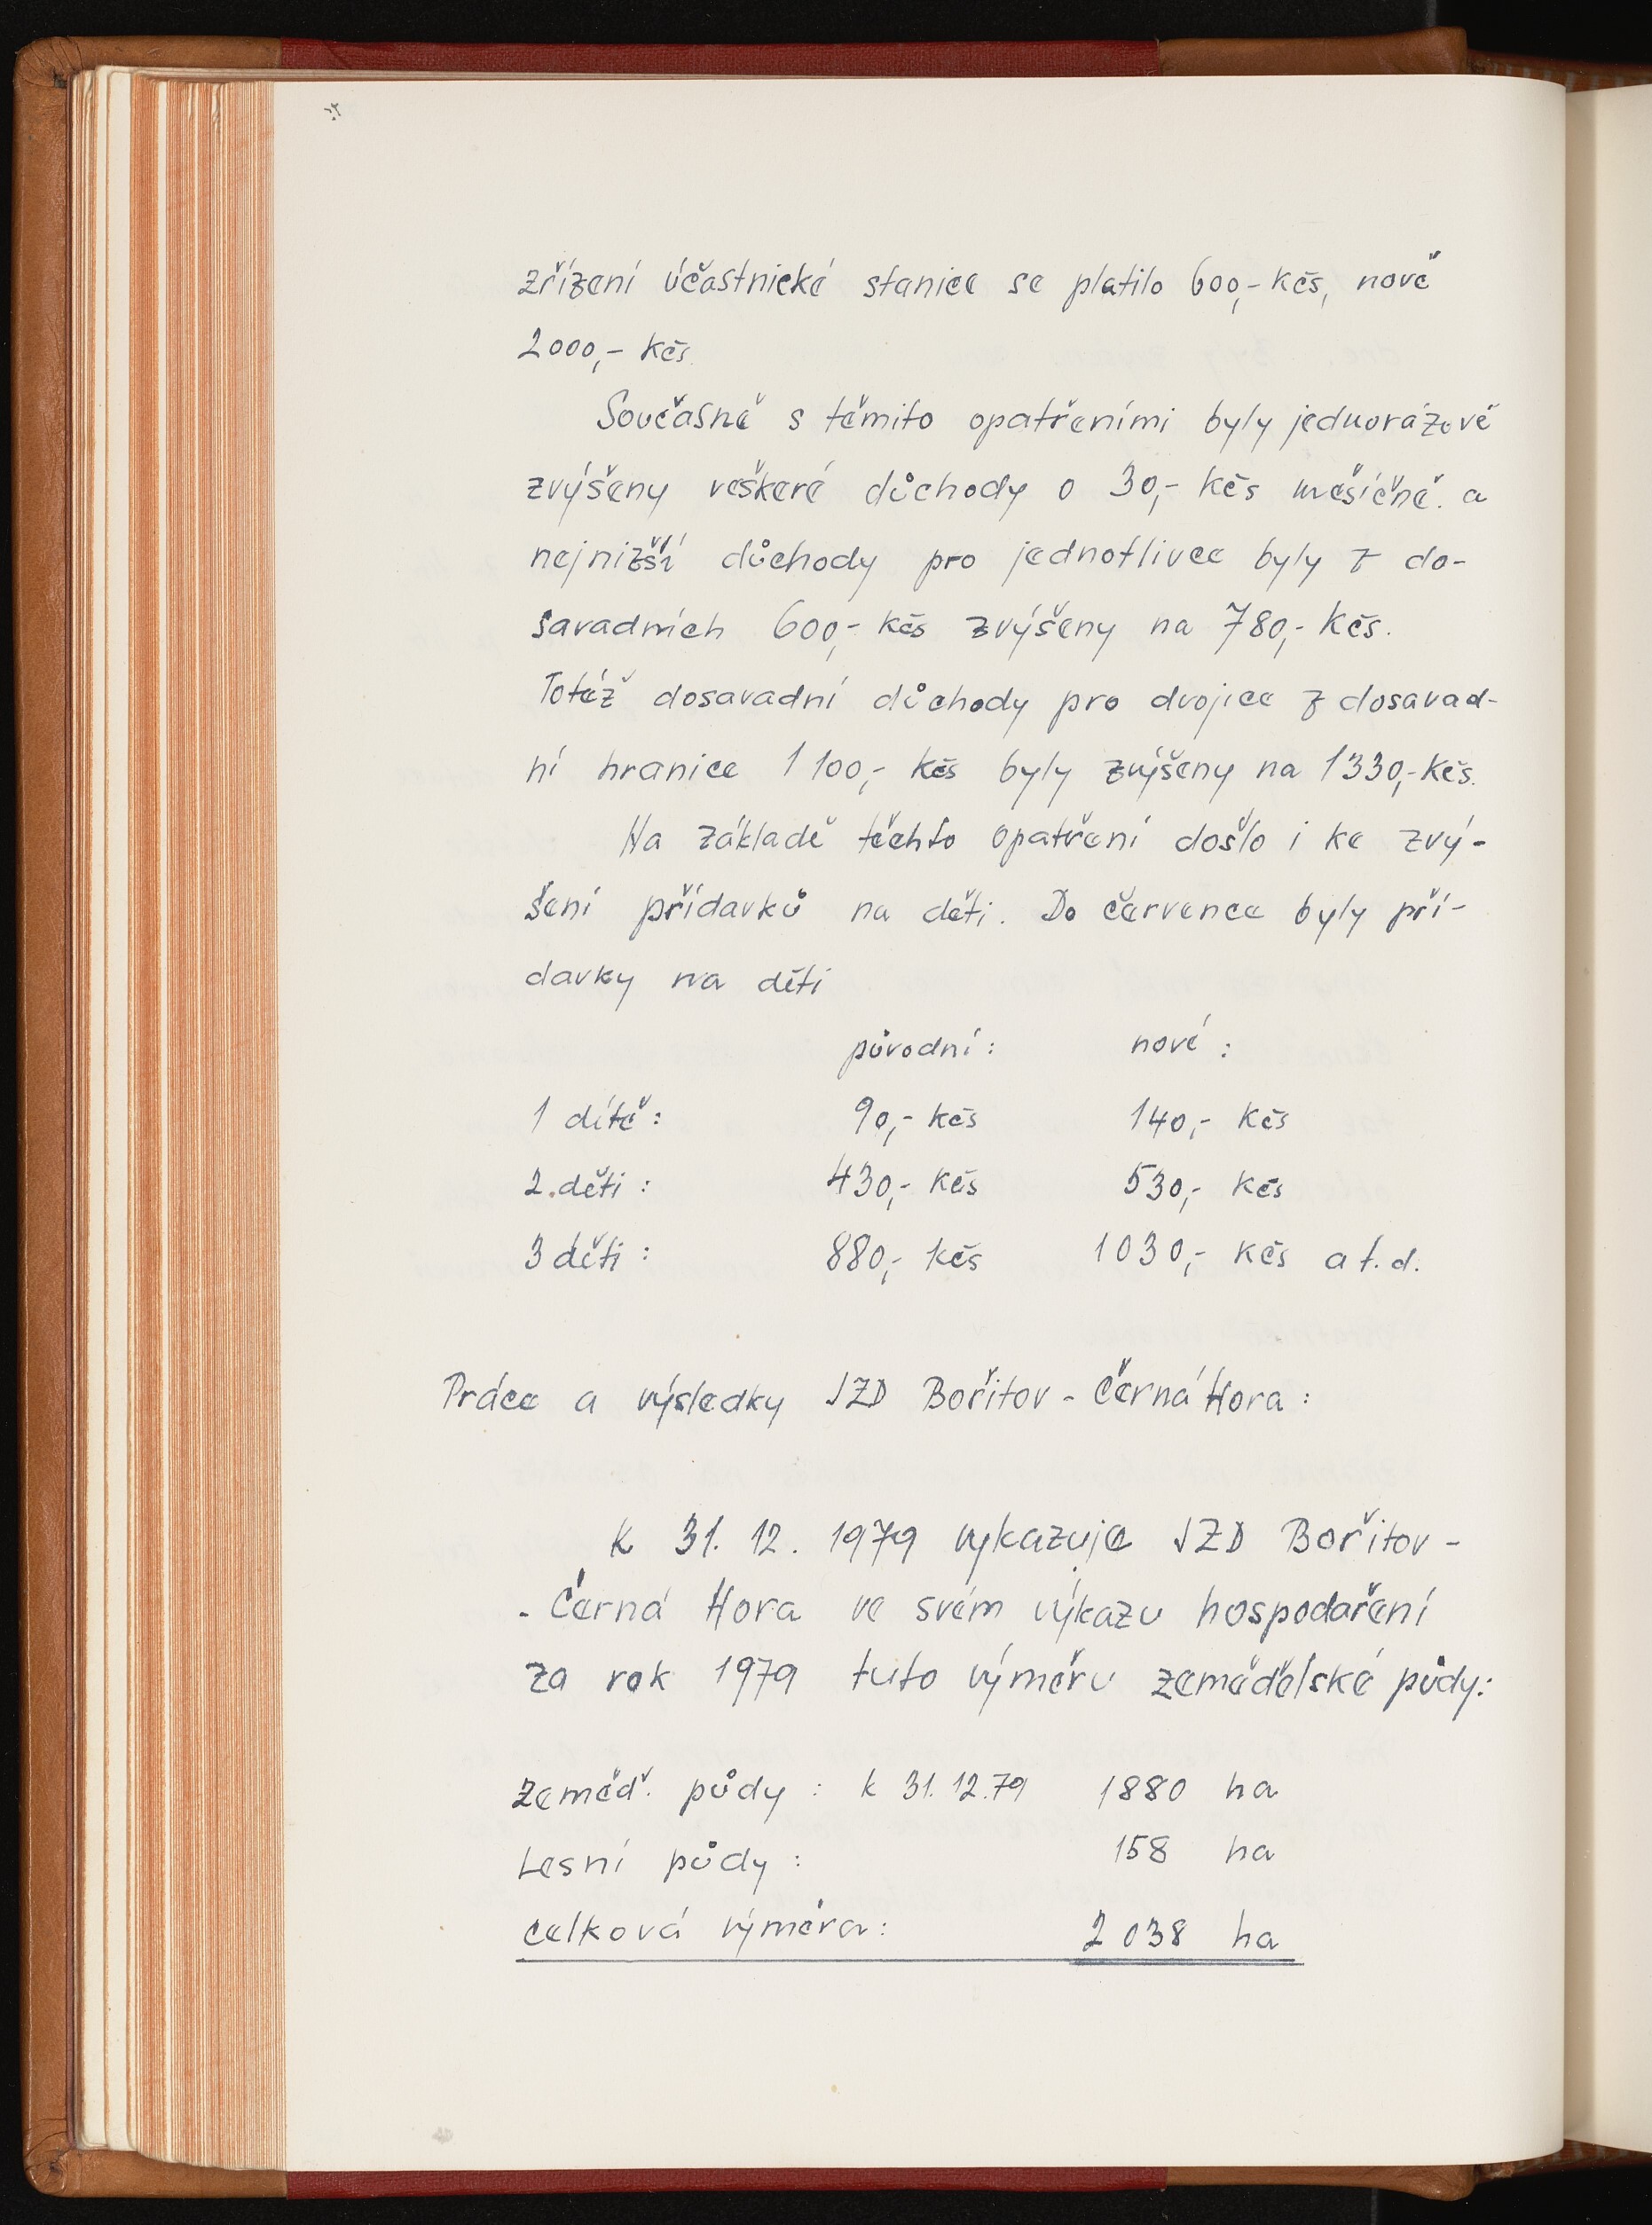 zřízení účastnické stanice se platilo 600,- Kčs, nově
2000,- Kčs.
Současně s těmito opatřeními byly jednorázově
zvýšeny veškeré důchody o 30,- Kčs měsíčně. a
nejnižší důchody pro jednotlivce byly z do-
savadních 600,- Kčs zvýšeny na 780,- Kčs.
Totéž dosavadní důchody pro dvojice z dosavad-
ní hranice 1100,- Kčs byly zvýšeny na 1330,- Kčs.
Na základě těchto opatření došlo i ke zvý-
šení přídavků na děti. Do července byly pří-
davky na děti
původní: nové:
1 dítě: 90,- Kčs 140,- Kčs
2.děti: 430,- Kčs 530,- Kčs
3 děti: 880,- Kčs 1030,- Kčs a t.d.
Práce a výsledky JZD Bořitov - Černá Hora:
K 31. 12. 1979 vykazuje JZD Bořitov -
- Černá Hora ve svém výkazu hospodaření
za rok 1979 tuto výměru zemědělské půdy:
Zeměd. půdy: k 31.12.79 1880 ha
Lesní půdy: 158 ha
Celková výměra: 2038 ha